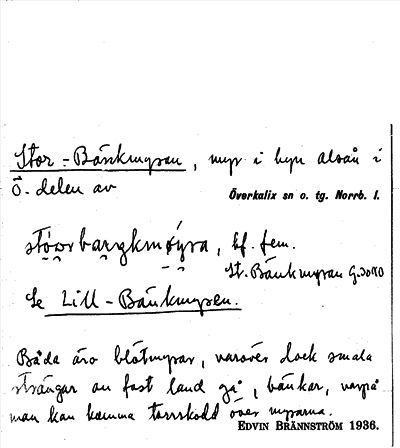 Stor-Bänkmyran, myr i byn Alsån i
Ö. delen av
Överkalix sn o. tg. Norrb. l.
bf. fem.
St. Bänkmyran
Se Lill-Bänkmyran.
Båda äro blötmyrar, varöver dock smala
strängar av fast land gå, bänkar, varpå
man kan komma torrskodd över myrarna.
EDVIN BRÄNNSTRÖM 1936.